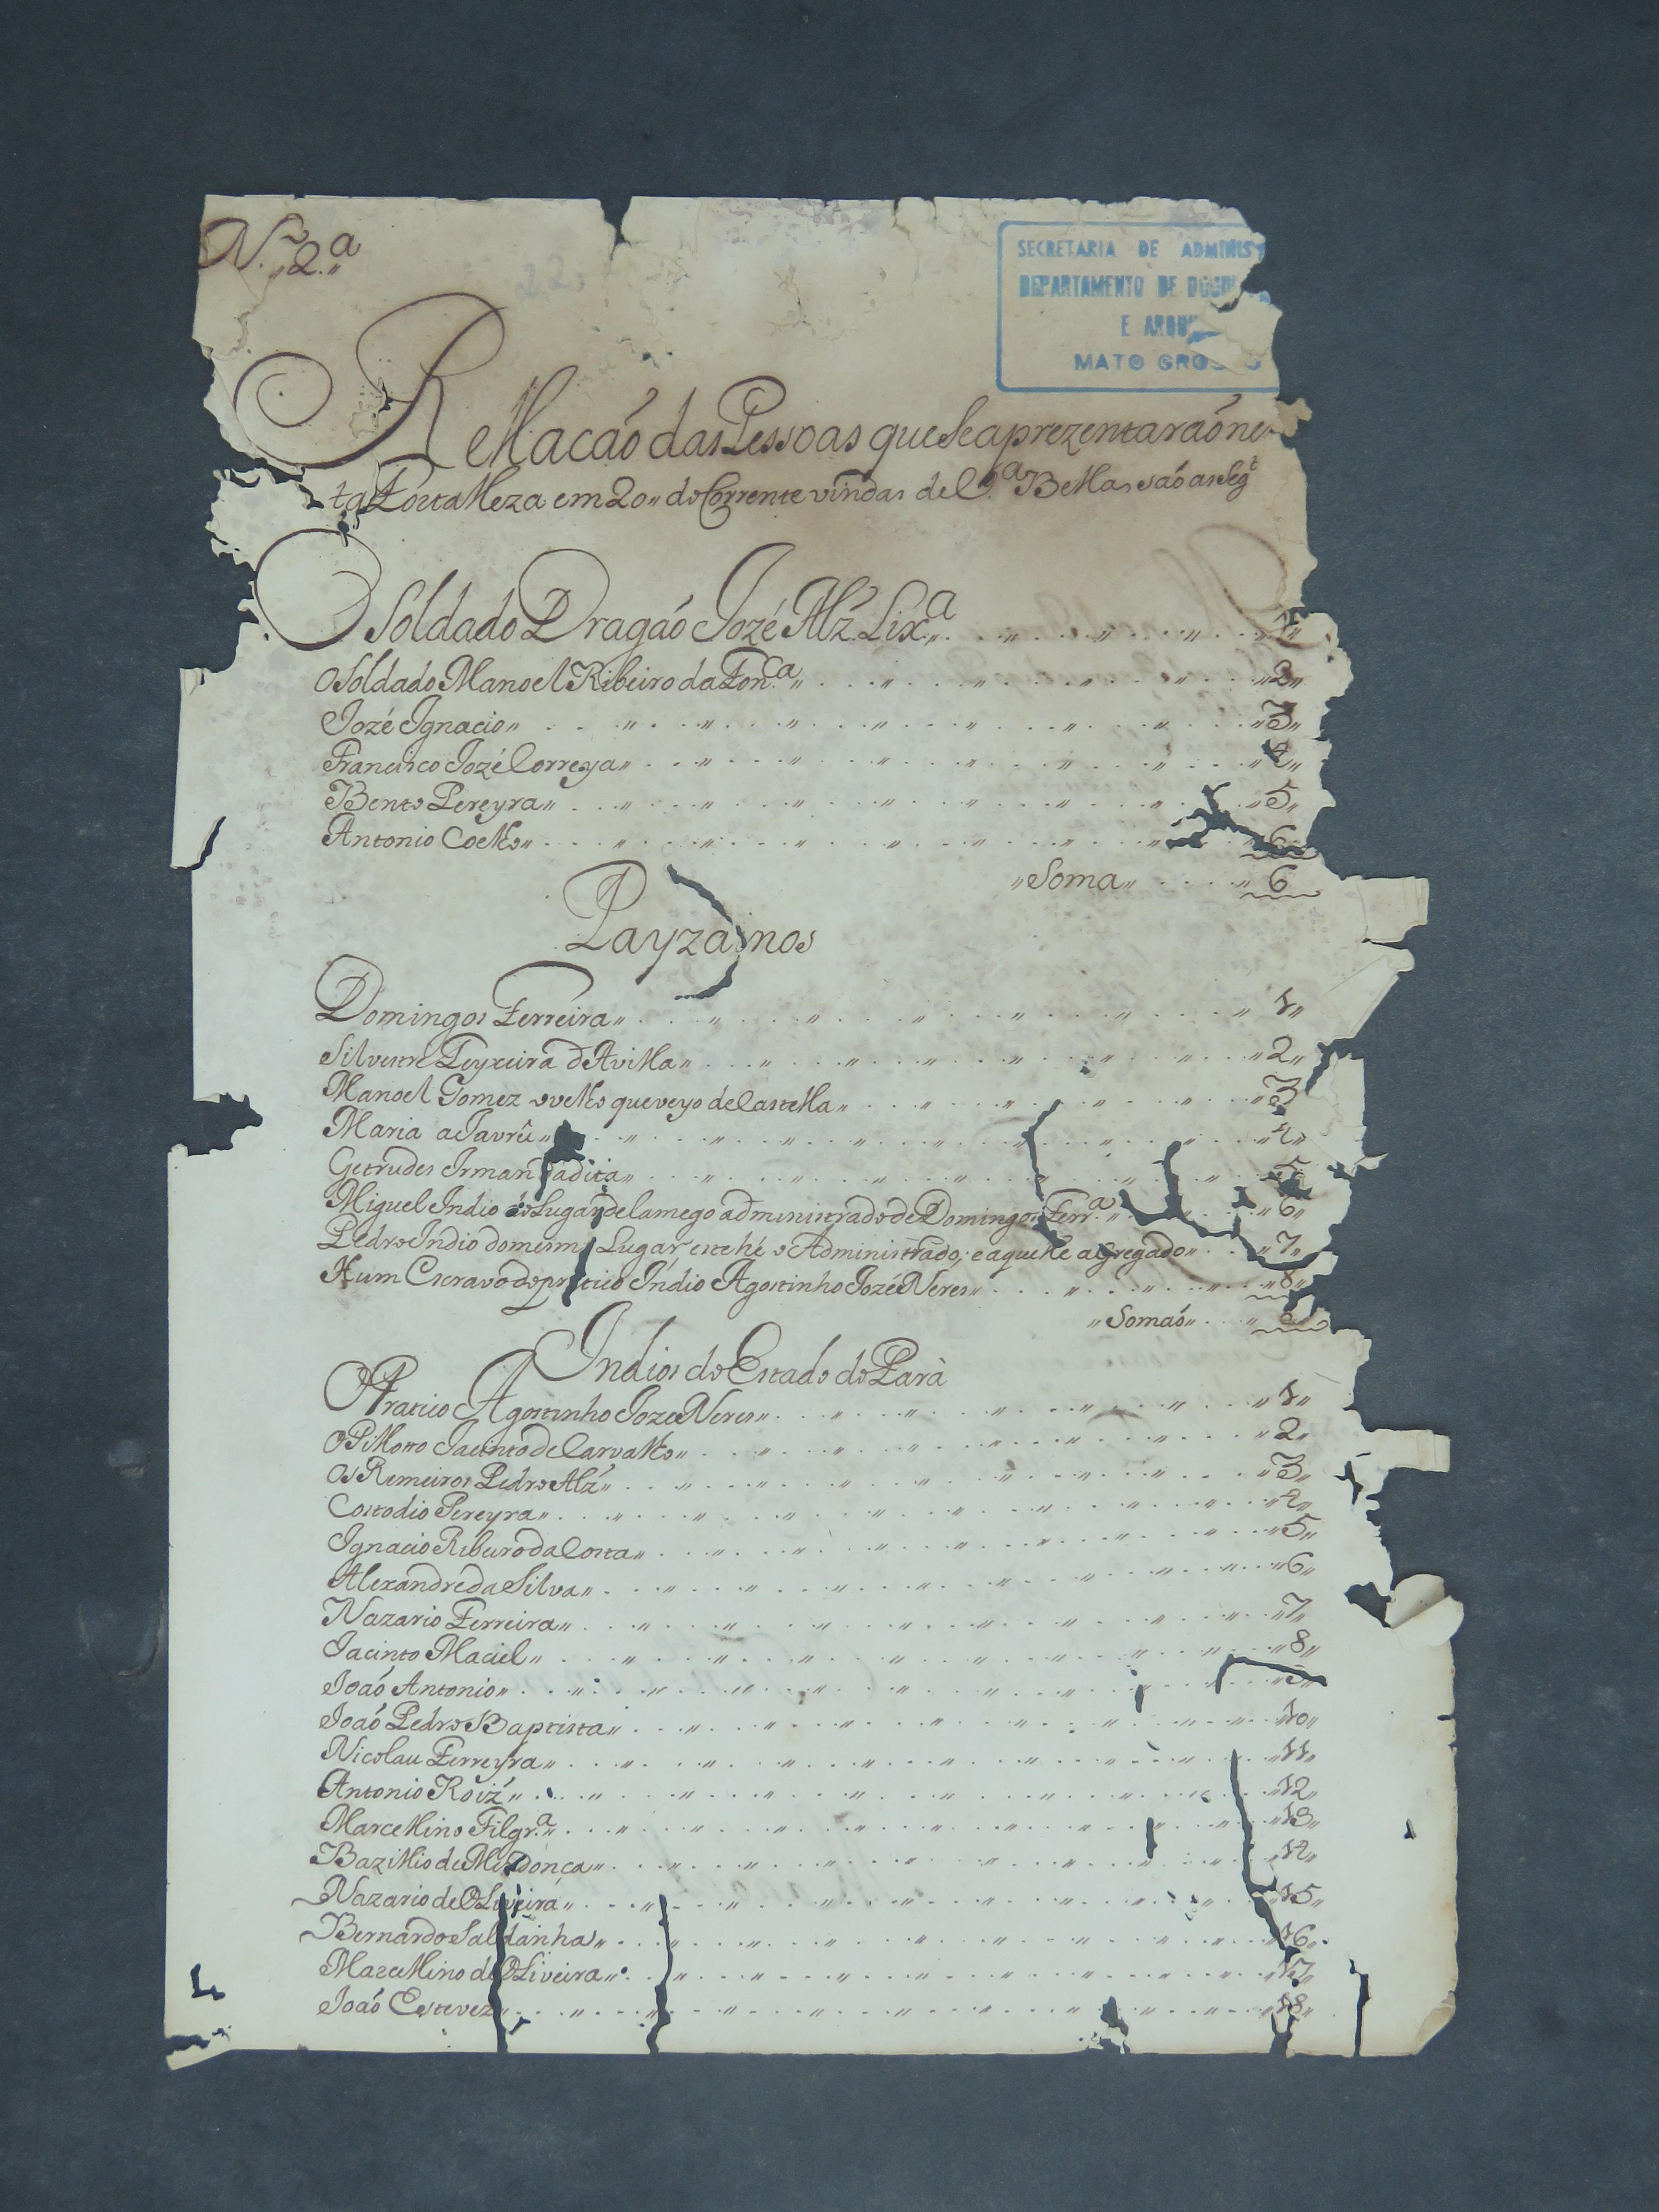 N. 2.ª
22
SECRETARIA DE ADMINIS
DEPARTAMENTO DE DOCU
E ARQU
MATO GROSSO
Rellacaó das Pessoas que Se aprezentaraó nes
ta Fortalleza em 20,, do Corrente vindas de V.ª Bella, saó as Seg.t
O Soldado Dragaó Jozé Alz. Lix.ª 1
O Soldado Manoel Ribeiro da Fon.ca 2
Jozé Ignacio 3
Francisco Jozé Correya 4
Bento Pereyra 5
Antonio Coelho 6
Soma 6
Payzanos
Domingos Ferreira 1
Silvestre Teyxeira d'Avilla 2
Manoel Gomez ovelho que veyo de Castella 3
Maria a Javrû 4
Getrudes Irman da dita 5
Miguel Indio do Lugar de Lamego administrado de Domingos Ferr.ª 6
Pedro Indio do mesmo Lugar este hé o Administrado, e aquelle agregado 7
Hum Escravo do pratico Indio Agostinho Jozé Neres 8
Somaó 8
Indios do Estado do Parà
O Pratico Agostinho Joze Neres 1
O Pilloto Jacinto de Carvalho 2
Os Remeiros Pedro Alz 3
Costodio Pereyra 4
Ignacio Ribeiro da Costa 5
Alexandre da Silva 6
Nazario Ferreira 7
Jacinto Maciel 8
Joaó Antonio 9
Joaó Pedro Baptista 10
Nicolau Ferreyra 11
Antonio Roiz 12
Marcellino Filgr.ª 13
Bazillio de Mendonça 14
Nazario de Oliveira 15
Bernardo Saldanha 16
Marcellino de Oliveira 17
Joaó Estevez 18